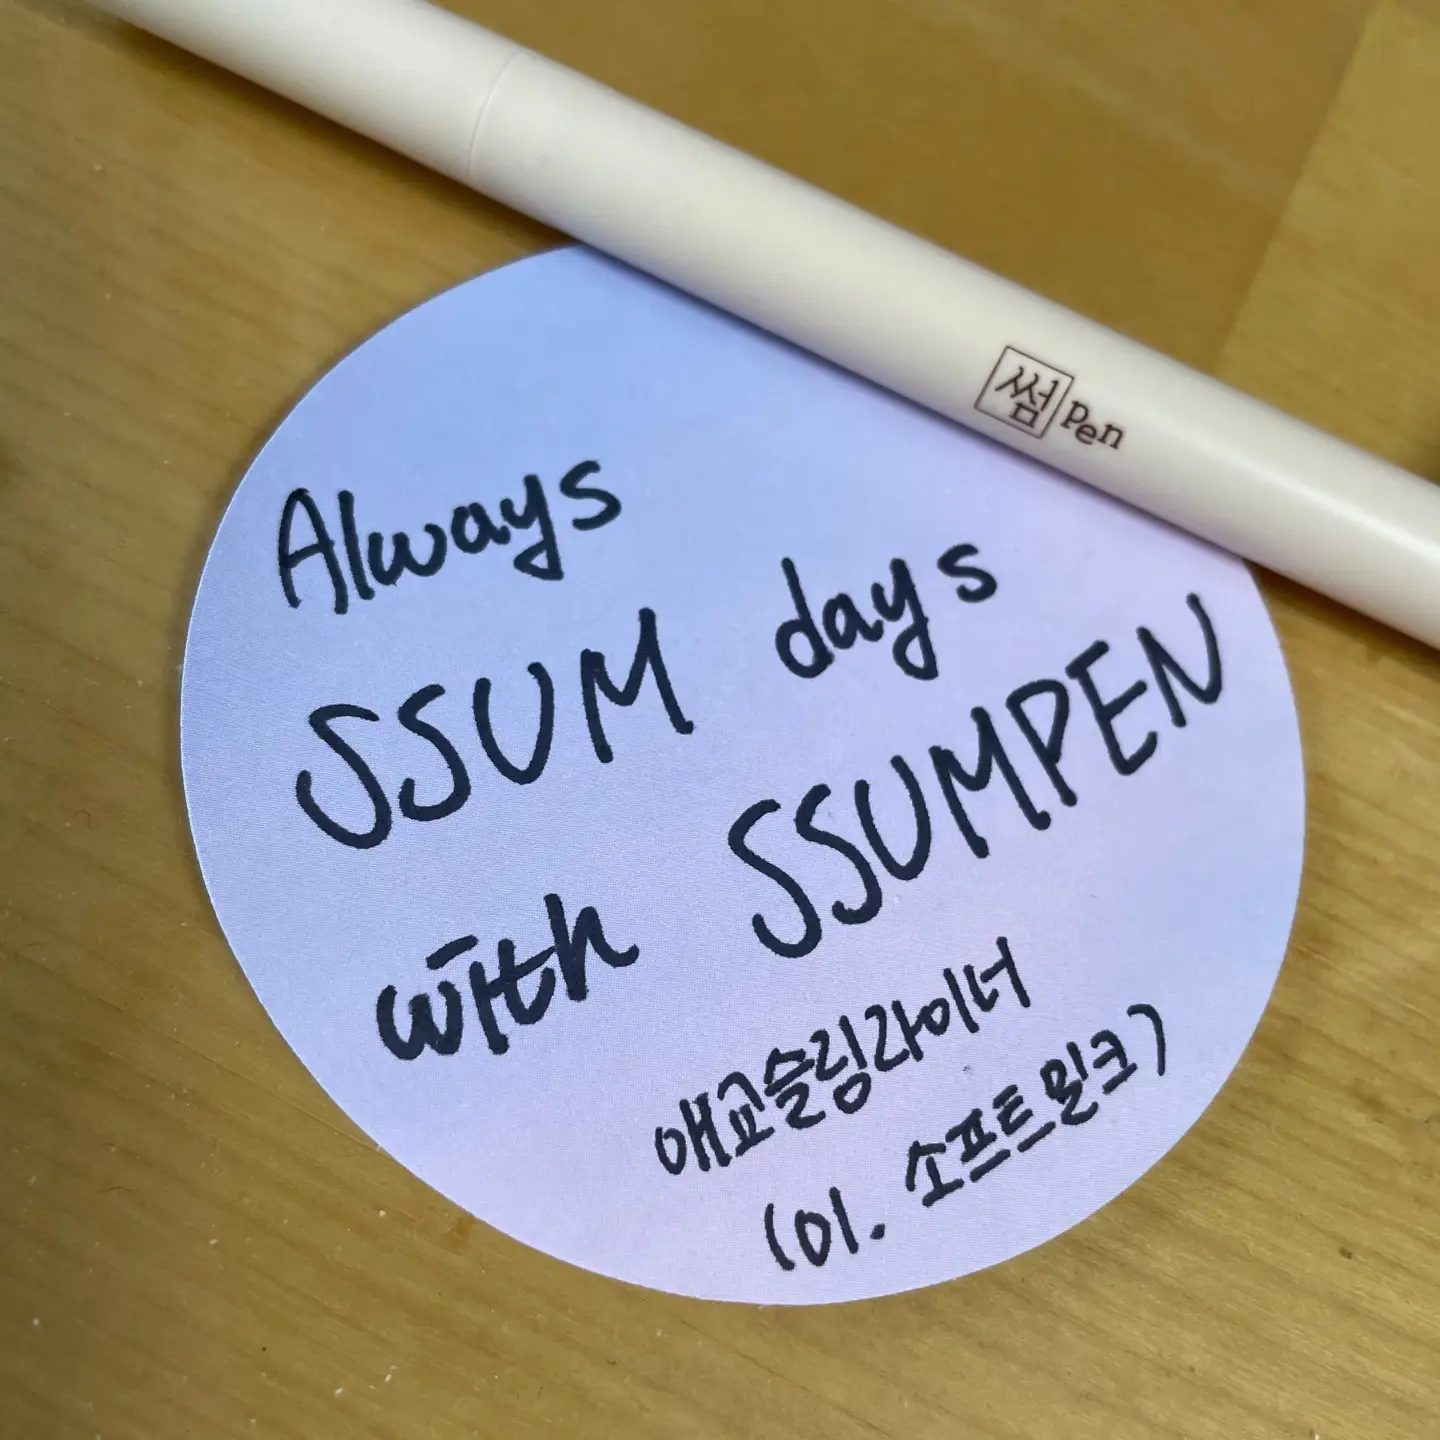 썸 Pen
Always
SSUM days
with SSUMPEN
애교슬링라이너
(01. 소프트밀크)